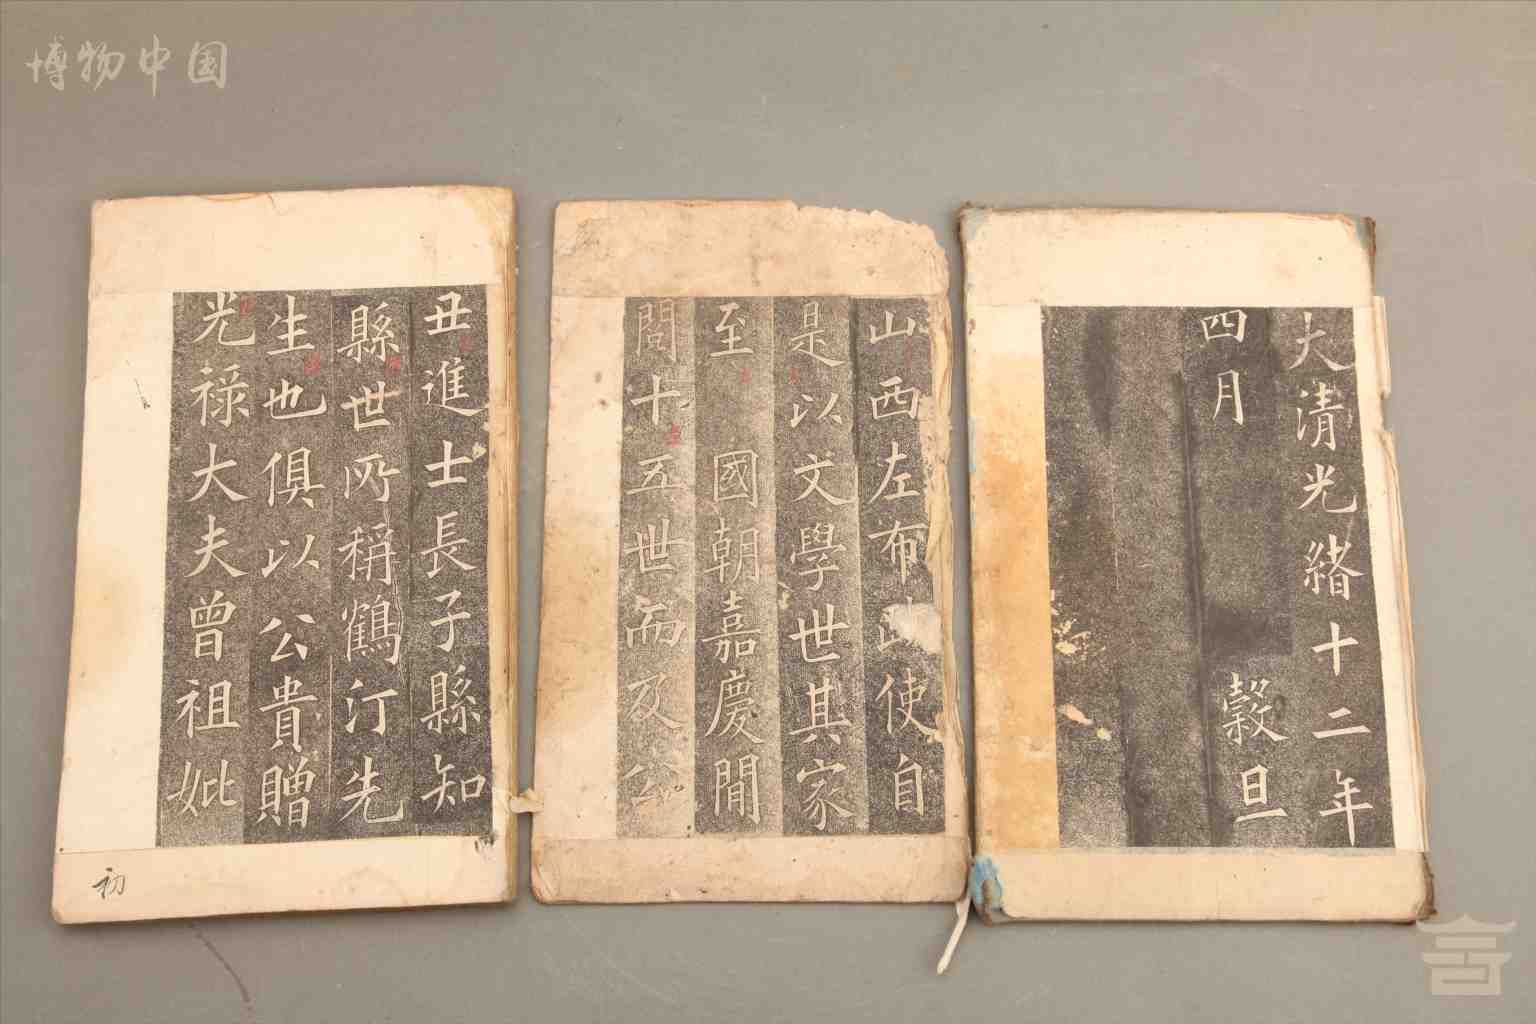 博物中国
丑進士長子縣知
縣世所稱鶴汀先
生也俱以公貴贈
光禄大夫曾祖妣
初
山西左布政使自
是以文學世其家
至 國朝嘉慶間
閲十五世而及公
大清光緒十二年
四月 穀旦